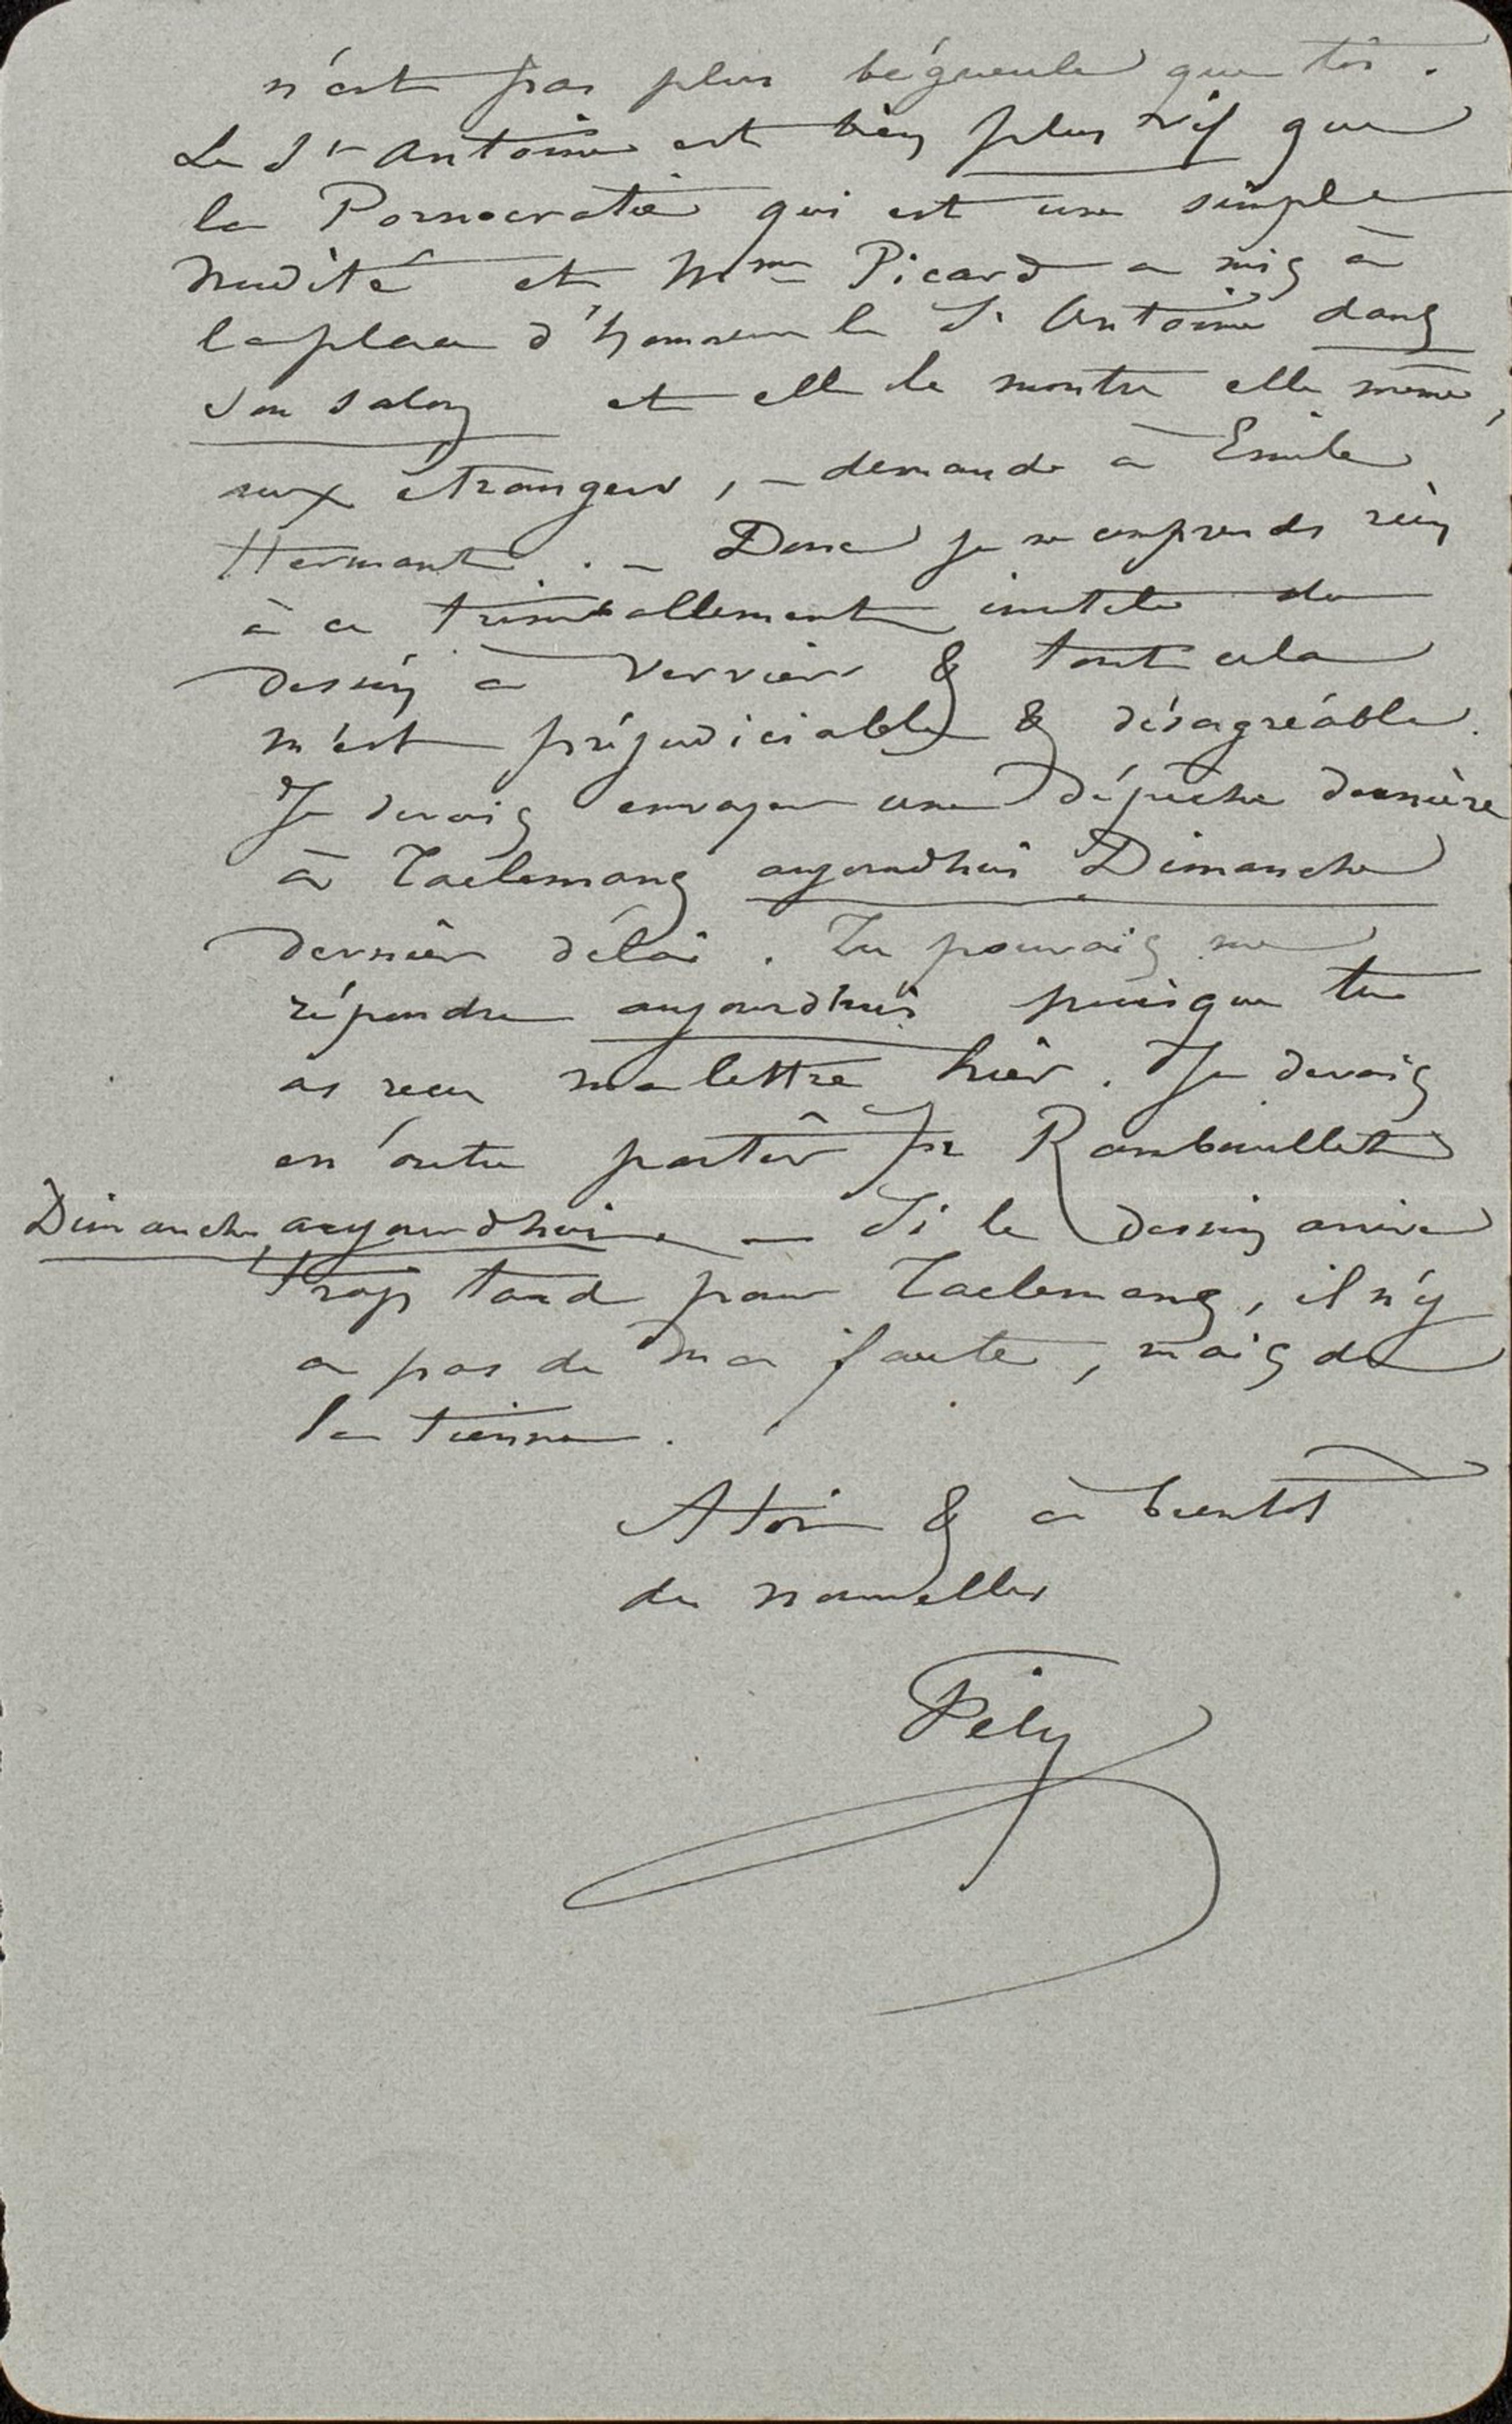 n'est pas plus bégueule que toi.
Le St Antoine est bien plus vif que
la Pornocratie qui est une simple
nudité et Mme Picard a mis à
la place d'honneur le St Antoine dans
son salon et elle le montre elle même,
aux étrangers, – demande à Emile
Hermant. – Donc je ne comprends rien
à ce trimballement inutile du
dessin à Verviers & tout cela
m'est préjudiciable & désagréable.
Je devais envoyer une dépêche dernière
à Taelemans aujourdhui Dimanche
dernier délai. Tu pouvais me
répondre aujourdhui puisque tu
as reçu ma lettre hier. Je devais
en outre partir pr Rambouillet
Dimanche, aujourdhui. – Si le dessin arrive
trop tard pour Taelemans, il n'y
a pas de ma faute, mais de
la tienne.
A toi & à bientôt
des nouvelles
Fély